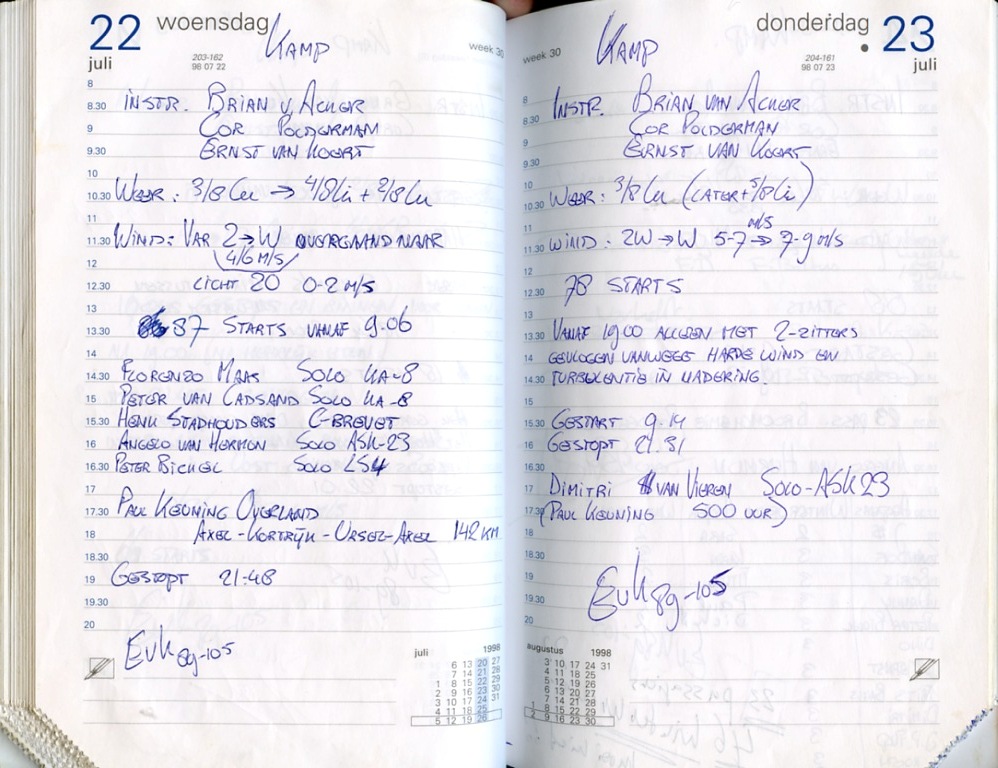 22 woensdag
juli
KAMP
203-162
98 07 22
week 30
8
8.30 INSTR. BRIAN v. ACKER
9 COR POLDERMAN
9.30 ERNST VAN KOERT
10
10.30 WEER: 3/8 Cu → 4/8 Ci + 2/8 Cu
11
11.30 WIND: VAR 2→W OVERGAAND NAAR
4/6 M/S
12
12.30 LICHT 20 0-2 M/S
13
13.30 87 STARTS VANAF 9.06
14
14.30 FLORENZO MAAS SOLO KA-8
15 PETER VAN CADSAND SOLO KA-8
15.30 HENK STADHOUDERS C-BREVET
16 ANGELO VAN HERMON SOLO ASK-23
16.30 PETER BICHEL SOLO LS4
17
17.30 PAUL KEUNING OVERLAND
18 AXEL-KORTRIJK-URSEL-AXEL 142 KM
18.30
19 GESTOPT 21:48
19.30
20
EvK 89-105
juli 1998
6 13 20 27
7 14 21 28
1 8 15 22 29
2 9 16 23 30
3 10 17 24 31
4 11 18 25
5 12 19 26
donderdag 23
juli
KAMP
week 30
204-161
98 07 23
8 INSTR. BRIAN VAN ACKER
8.30
9 COR POLDERMAN
9.30 ERNST VAN KOERT
10
10.30 WEER: 3/8 Cu (LATER + 5/8 Ci)
11
11.30 WIND: ZW→W 5-7 M/S → 7-9 M/S
12
12.30 78 STARTS
13
13.30 VANAF 19.00 ALLEEN MET 2-ZITTERS
14 GEVLOGEN VANWEGE HARDE WIND EN
14.30 TURBULENTIE IN NADERING.
15
15.30 GESTART 9.14
16 GESTOPT 21.31
16.30
17 DIMITRI VAN VIEREN SOLO-ASK23
17.30 (PAUL KEUNING 500 UUR)
18
18.30
19
19.30
20
EvK 89-105
augustus 1998
3 10 17 24 31
4 11 18 25
5 12 19 26
6 13 20 27
7 14 21 28
1 8 15 22 29
2 9 16 23 30